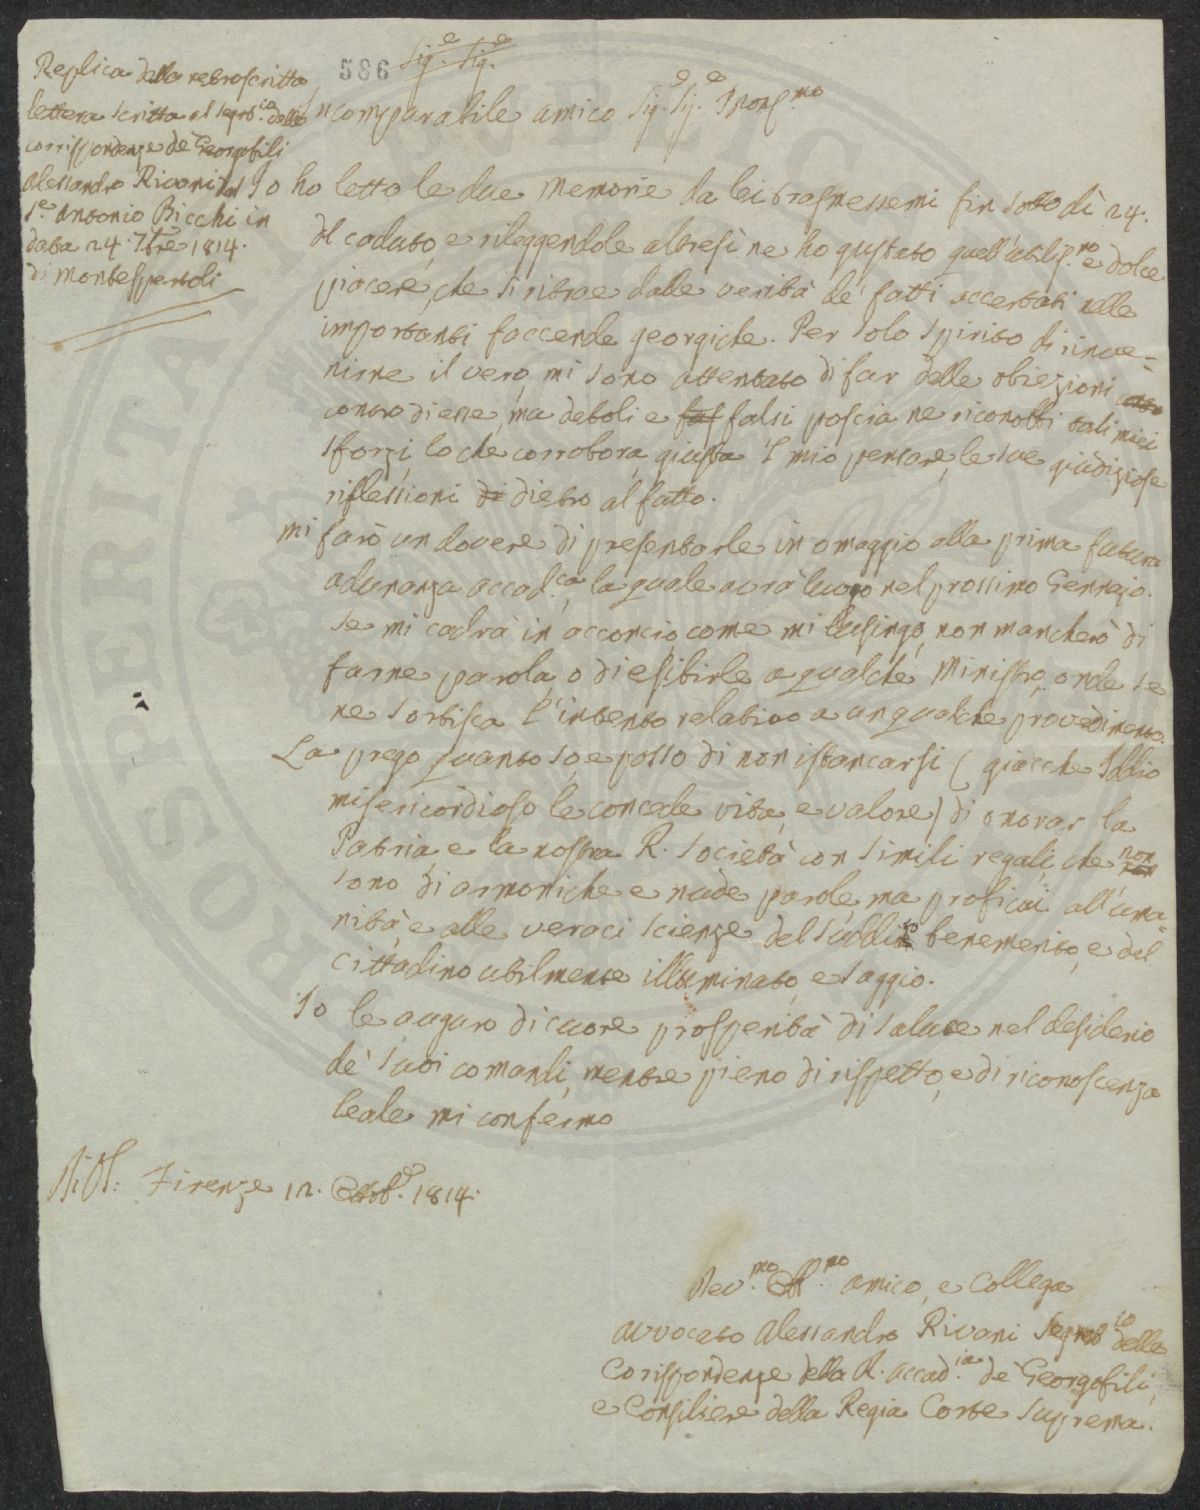 Replica della retroscritta
lettera scritta al Segret.io delle
corrispondenze de' Georgofili
Alessandro Rivani dal
S.e Antonio Bicchi in
data 24. 7bre 1814.
di Montespertoli
586
Sig.e Sig.e
Incomparabile amico Sig.e Sig.e Pron
Io ho letto le due memorie da lei trasmessemi fin sotto dì 24.
del caduto, e rileggendole altresì ne ho gustato quell'utiliss.mo e dolce
piacere, che si ritrae dalle verità de' fatti accertati nelle
importanti faccende georgiche. Per solo spirito di rinve-
nirne il vero, mi sono attentato di far delle obiezioni
contro di esse, ma deboli e falsi poscia ne riconobbi tali miei
sforzi, lo che corrobora, giusta 'l mio pensare, le sue giudiziose
riflessioni di dietro al fatto.
Mi farò un dovere di presentarle in omaggio alla prima futura
adunanza accad.ca la quale avrà luogo nel prossimo Gennajo.
Se mi cadrà in acconcio, come mi lusingo, non mancherò di
farne parola, o di esibirle a qualche Ministro, onde se
ne sortisca l'intento relativo a un qualche provedimento.
La prego quanto so, e posso di non istancarsi (giacchè Iddio
misericordioso le concede vita, e valore) di onorar la
Patria, e la nostra R. Società con simili regali, che non
sono di armoniche e nude parole, ma proficui all'uma-
nità, e alle veraci scienze del suddito benemerito, e del
cittadino utilmente illuminato, e saggio.
Io le auguro di cuore prosperità di salute nel desiderio
de' suoi comandi, mentre pieno di rispetto, e di riconoscenza
leale mi confermo
Di VS: Firenze 12. Ottob.e 1814.
Dev.mo Obb.mo amico, e Collega
avvocato Alessandro Rivani Segret.io delle
Corispondenze della R. Accad.ia de' Georgofili,
e Consiliere della Regia Corte Suprema.
PROSPERITAS PUBLICA